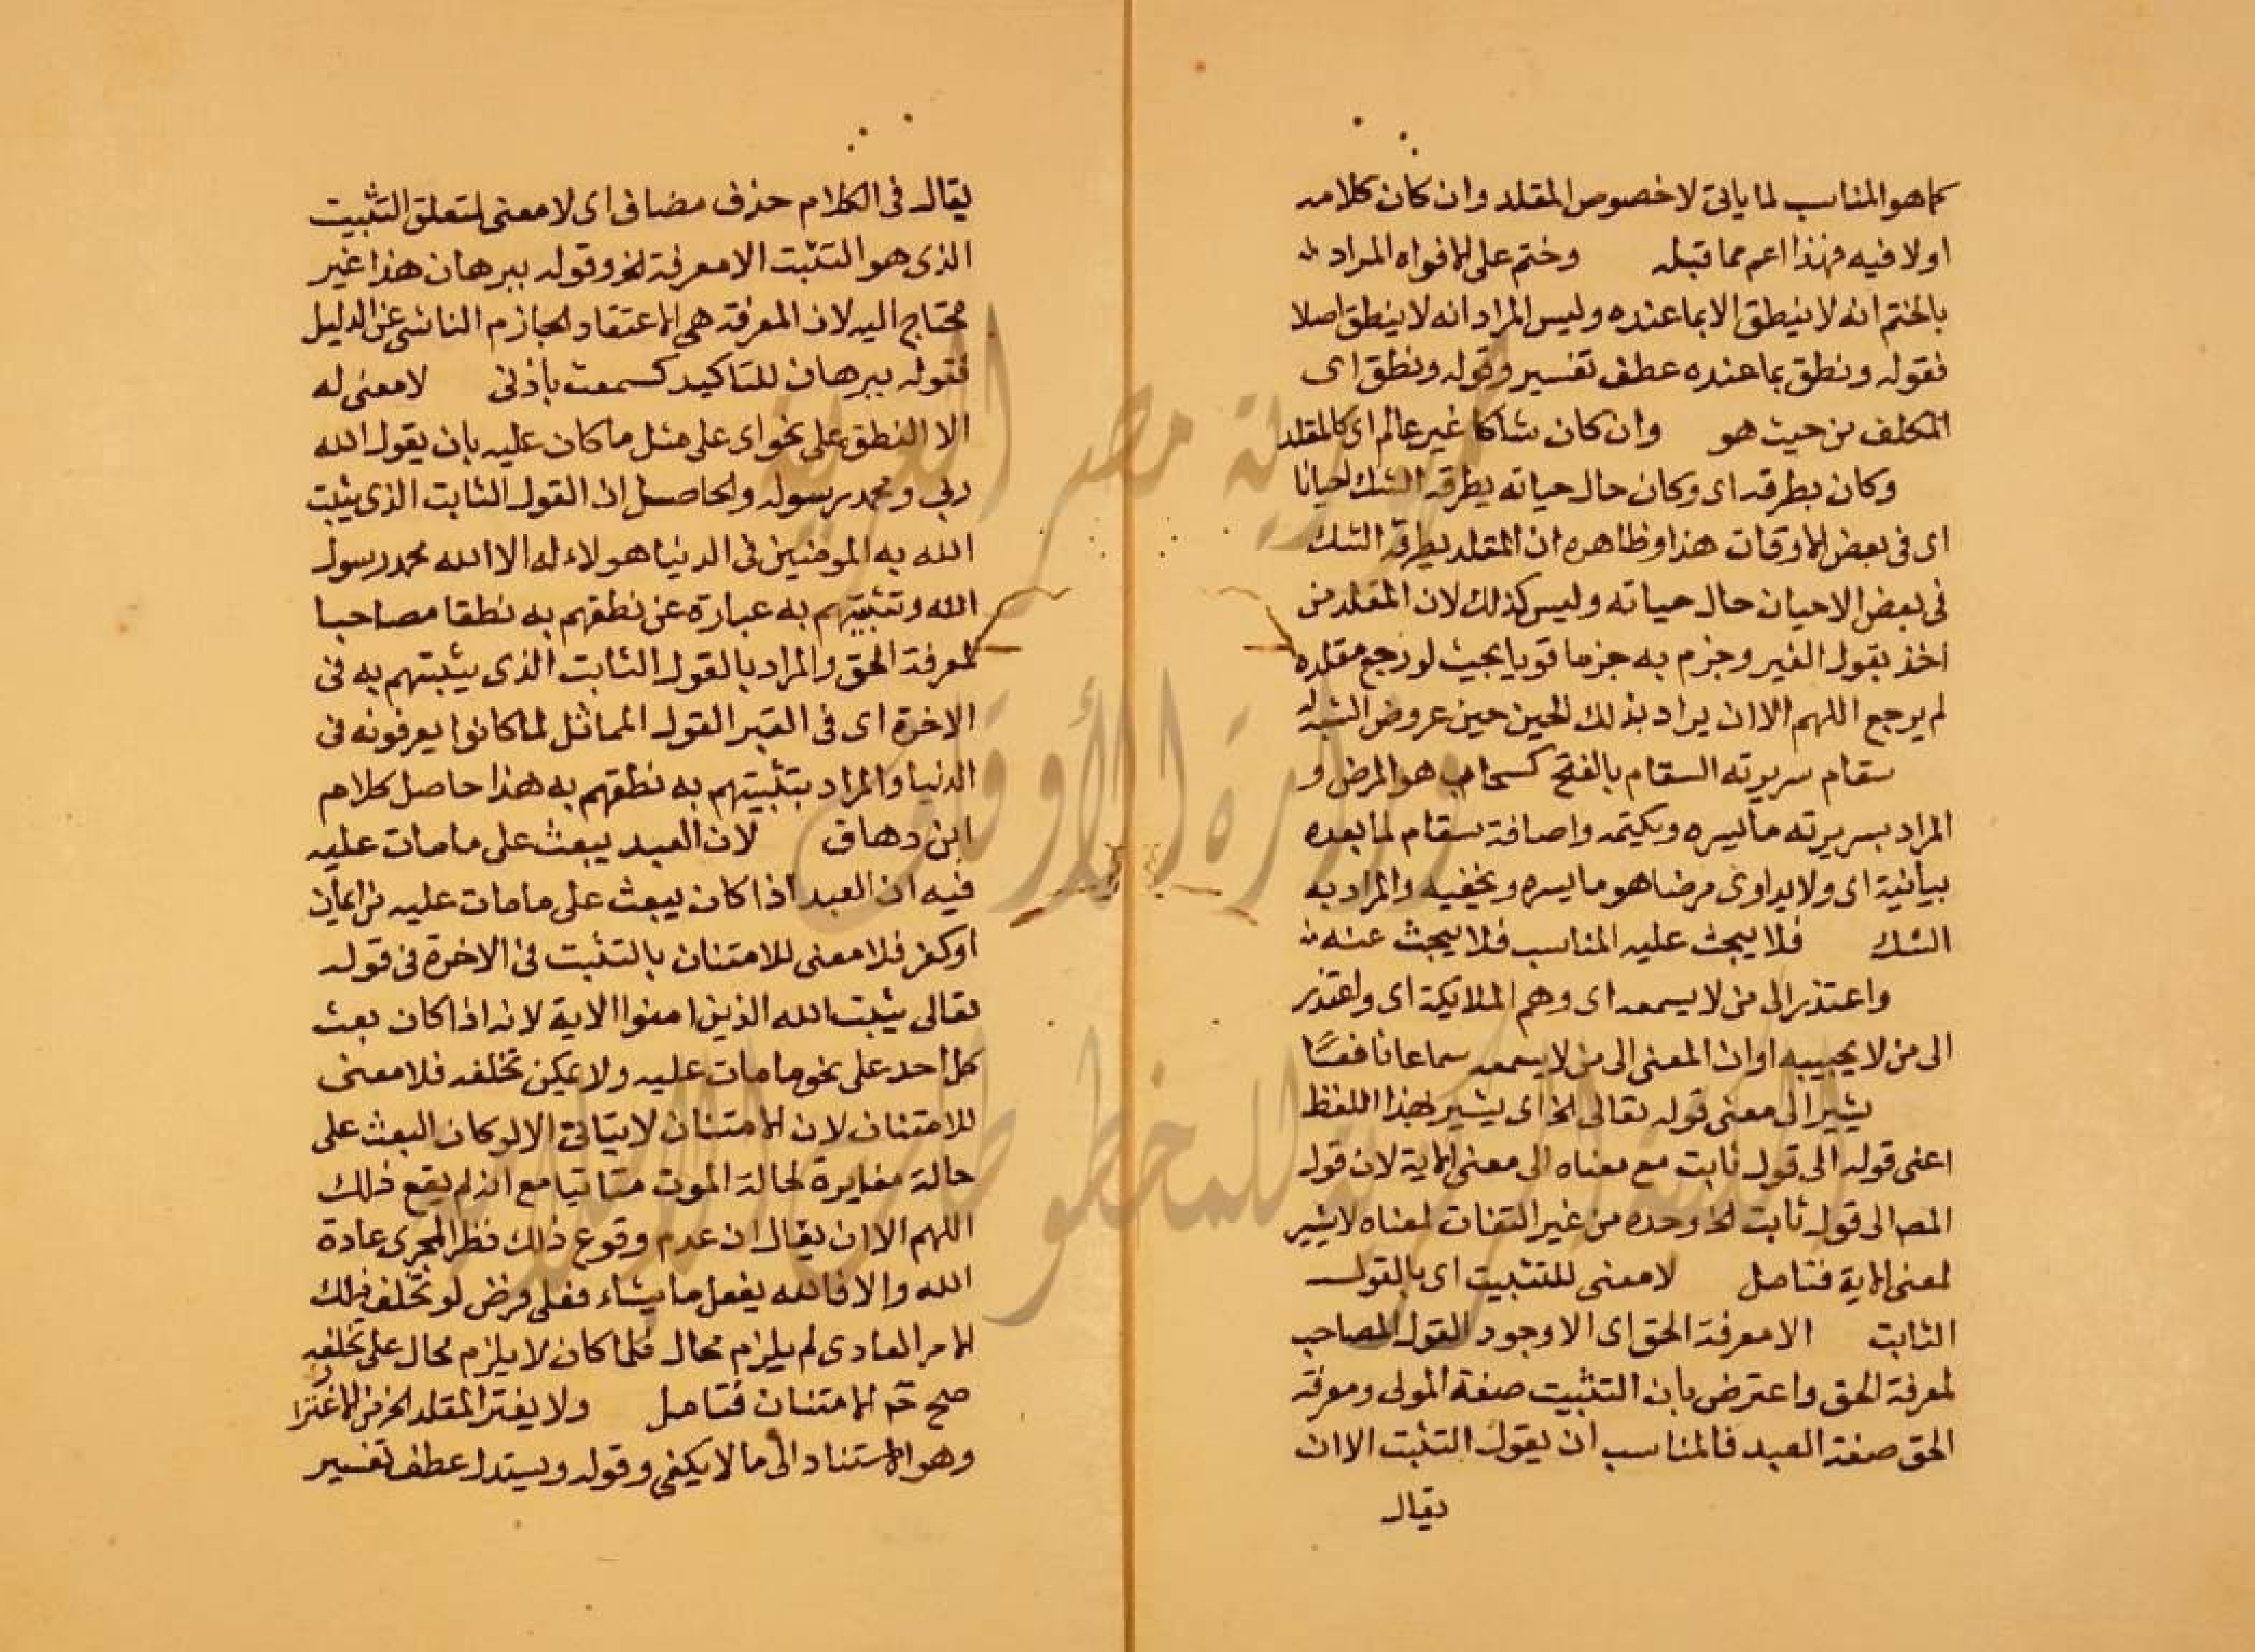 كما هو المناسب لما ياتى لا خصوص المقلد وان كان كلامه
اولا فيه فهذا اعم مما قبله وختم على الافواه المراد
بالختم انه لا ينطق الا بما عنده وليس المراد انه لا ينطق اصلا
فقوله ونطق بما عنده عطف تفسير وقوله ونطق اى
المكلف من حيث هو وان كان شاكا غير عالم اى كالمقلد
وكان يطرقه اى وكان حال حياته يطرقه الشك احيانا
اى فى بعض الاوقات هذا وظاهره ان المقلد يطرقه الشك
فى بعض الاحيان حال حياته وليس كذلك لان المقلد من
اخذ بقول الغير وجزم به جزما قويا بحيث لو رجع مقلده
لم يرجع اللهم الا ان يراد بذلك الحين حين عروض الشبه له
سقام سريرته السقام بالفتح كسحاب هو المرض و
المراد بسريرته ما يسره ويكتمه واضافة سقام لما بعده
بيانية اى ولا يداوى مرضا هو ما يسره ويخفيه والمراد به
الشك فلا يبحث عليه المناسب فلا يبحث عنه
واعتذر الى من لا يسمعه اى وهم الملايكة اى واعتذر
الى من لا يجيبه او ان المعنى الى من لا يسمعه سماعا نافعًا
يشير الى معنى قوله تعالى الخ اى يشير بهذا اللفظ
اعنى قوله الى قول ثابت مع معناه الى معنى الاية لان قول
المصـ الى قول ثابت الخ وحده من غير التفات لمعناه لا يشير
لمعنى الاية فتامل لا معنى للتثبيت اى بالقول
الثابت الا معرفة الحق اى الا وجود القول المصاحب
لمعرفة الحق واعترض بان التثبيت صفة المولى ومعرفة
الحق صفة العبد فالمناسب ان يقول التثبت الا ان
يقال
يقال فى الكلام حذف مضاف اى لا معنى لمتعلق التثبيت
الذى هو التثبت الا معرفة الخ وقوله ببرهان هذا غير
محتاج اليه لان المعرفة هى الاعتقاد الجازم الناشى عن الدليل
فقوله ببرهان للتاكيد كسمعت باذنى لا معنى له
الا النطق على نحو اى على مثل ما كان عليه بان يقول الله
ربى ومحمد رسوله والحاصل ان القول الثابت الذى يثبت
الله به المومنين فى الدنيا هو لا اله الا الله محمد رسول
الله وتثبيتهم به عبارة عن نطقهم به نطقا مصاحبا
لمعرفة الحق والمراد بالقول الثابت الذى يثبتهم به فى
الاخرة اى فى القبر القول المماثل لما كانوا يعرفونه فى
الدنيا والمراد بتثبيتهم به نطقهم به هذا حاصل كلام
ابن دهاق لان العبد يبعث على ما مات عليه
فيه ان العبد اذا كان يبعث على ما مات عليه من ايمان
او كفر فلا معنى للامتنان بالتثبت فى الاخرة فى قوله
تعالى يثبت الله الذين امنوا الاية لانه اذا كان بعث
كل احد على نحو ما مات عليه ولا يمكن تخلفه فلا معنى
للامتنان لان الامتنان لا يتاتى الا لو كان البعث على
حالة مغايرة لحالة الموت متاتيا مع انه لم يقع ذلك
اللهم الا ان يقال ان عدم وقوع ذلك نظرا لمجرى عادة
الله والا فالله يفعل ما يشاء فعلى فرض لو تخلف ذلك
الامر العادى لم يلزم محال فلما كان لا يلزم محال على تخلفه
صح ثم الامتنان فتامل ولا يغتر المقلد الخ من الاغترار
وهو الاستناد الى ما لا يكفى وقوله ويستدل عطف تفسير
جمهورية مصر العربية
وزارة الأوقاف
المكتبة المركزية للمخطوطات الإسلامية